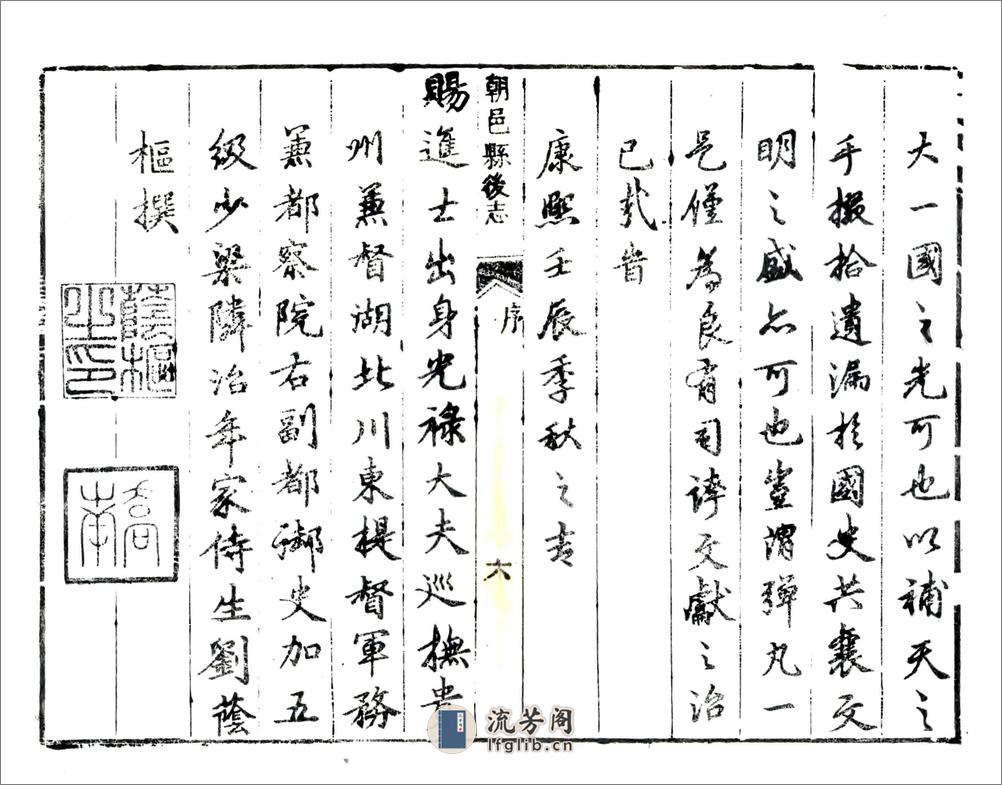 大一國之光可也以補天之
手掇拾遺漏於國史共襄文
明之盛亦可也豈謂彈丸一
邑僅為良有司誇文獻之治
已哉旹
康熙壬辰季秋之吉
朝邑縣後志
序
六
賜進士出身光祿大夫巡撫貴
州兼督湖北川東提督軍務
兼都察院右副都御史加五
級少梁隣治年家侍生劉蔭
樞撰
蔭樞之印
流芳阁
lfglib.cn